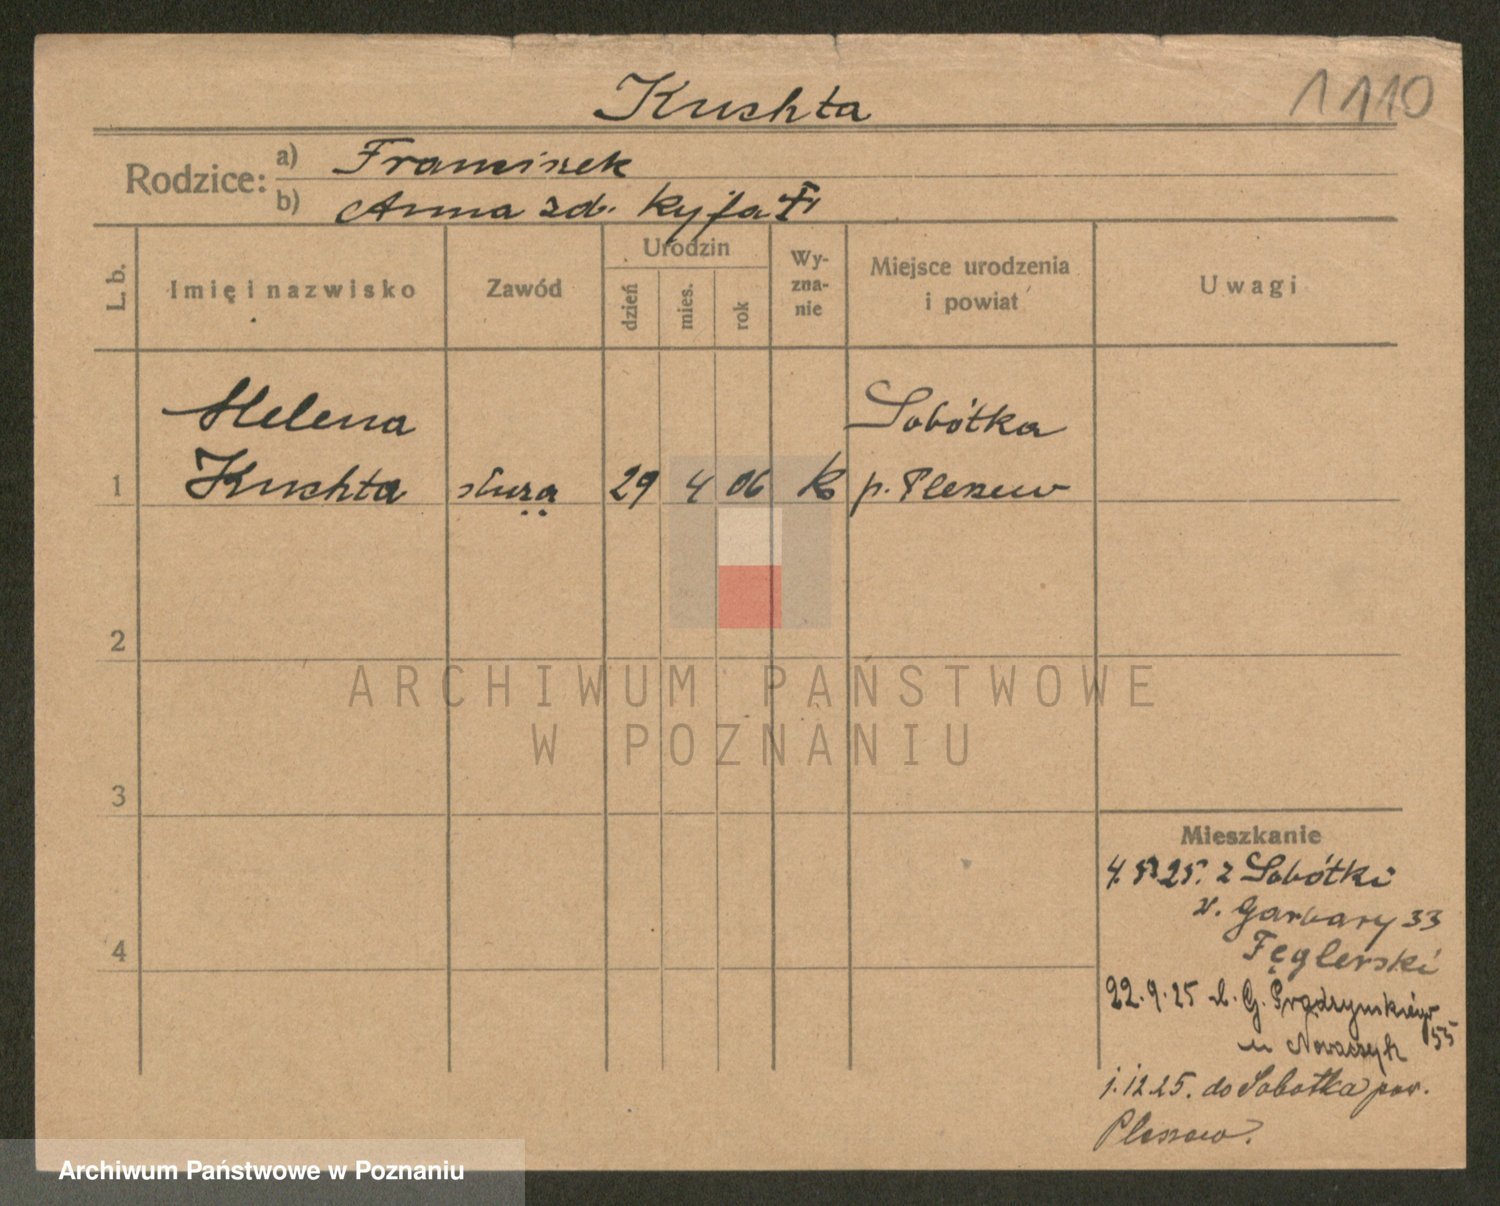 Kuchta
1110
Rodzice:
a) Franciszek
b) Anna zd.
L. b.
Imię i nazwisko
Zawód
Urodzin
dzień
mies.
rok
Wy-
zna-
nie
Miejsce urodzenia
i powiat
Uwagi
Helena
Sobótka
1 Kuchta służą 29 4 06 k p. Pleszew
2
ARCHIWUM PAŃSTWOWE
W POZNANIU
3
Mieszkanie
4. 25. z Sobótki
Garbary 33
4
Fęglerski
22.9.25 d. G. Prądzyńskiego
55
u Nowaczyk
1.12.25. do Sobotka pow.
Pleszew.
Archiwum Państwowe w Poznaniu